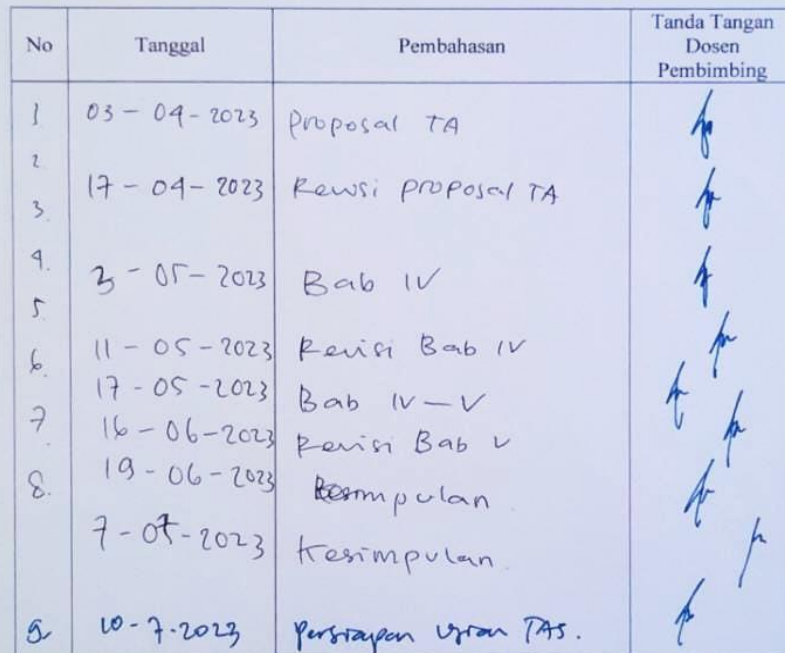 No Tanggal Pembahasan Tanda Tangan Dosen Pembimbing
1 03 - 04 - 2023 Proposal TA
2.
17 - 04 - 2023 Revisi proposal TA
3.
4. 3 - 05 - 2023 Bab IV
5.
11 - 05 - 2023 Revisi Bab IV
6.
17 - 05 - 2023 Bab IV - V
7. 16 - 06 - 2023 Revisi Bab V
8. 19 - 06 - 2023 Kesimpulan
7 - 07 - 2023 Kesimpulan
9. 10 - 7 - 2023 Persiapan Ujian TAS.